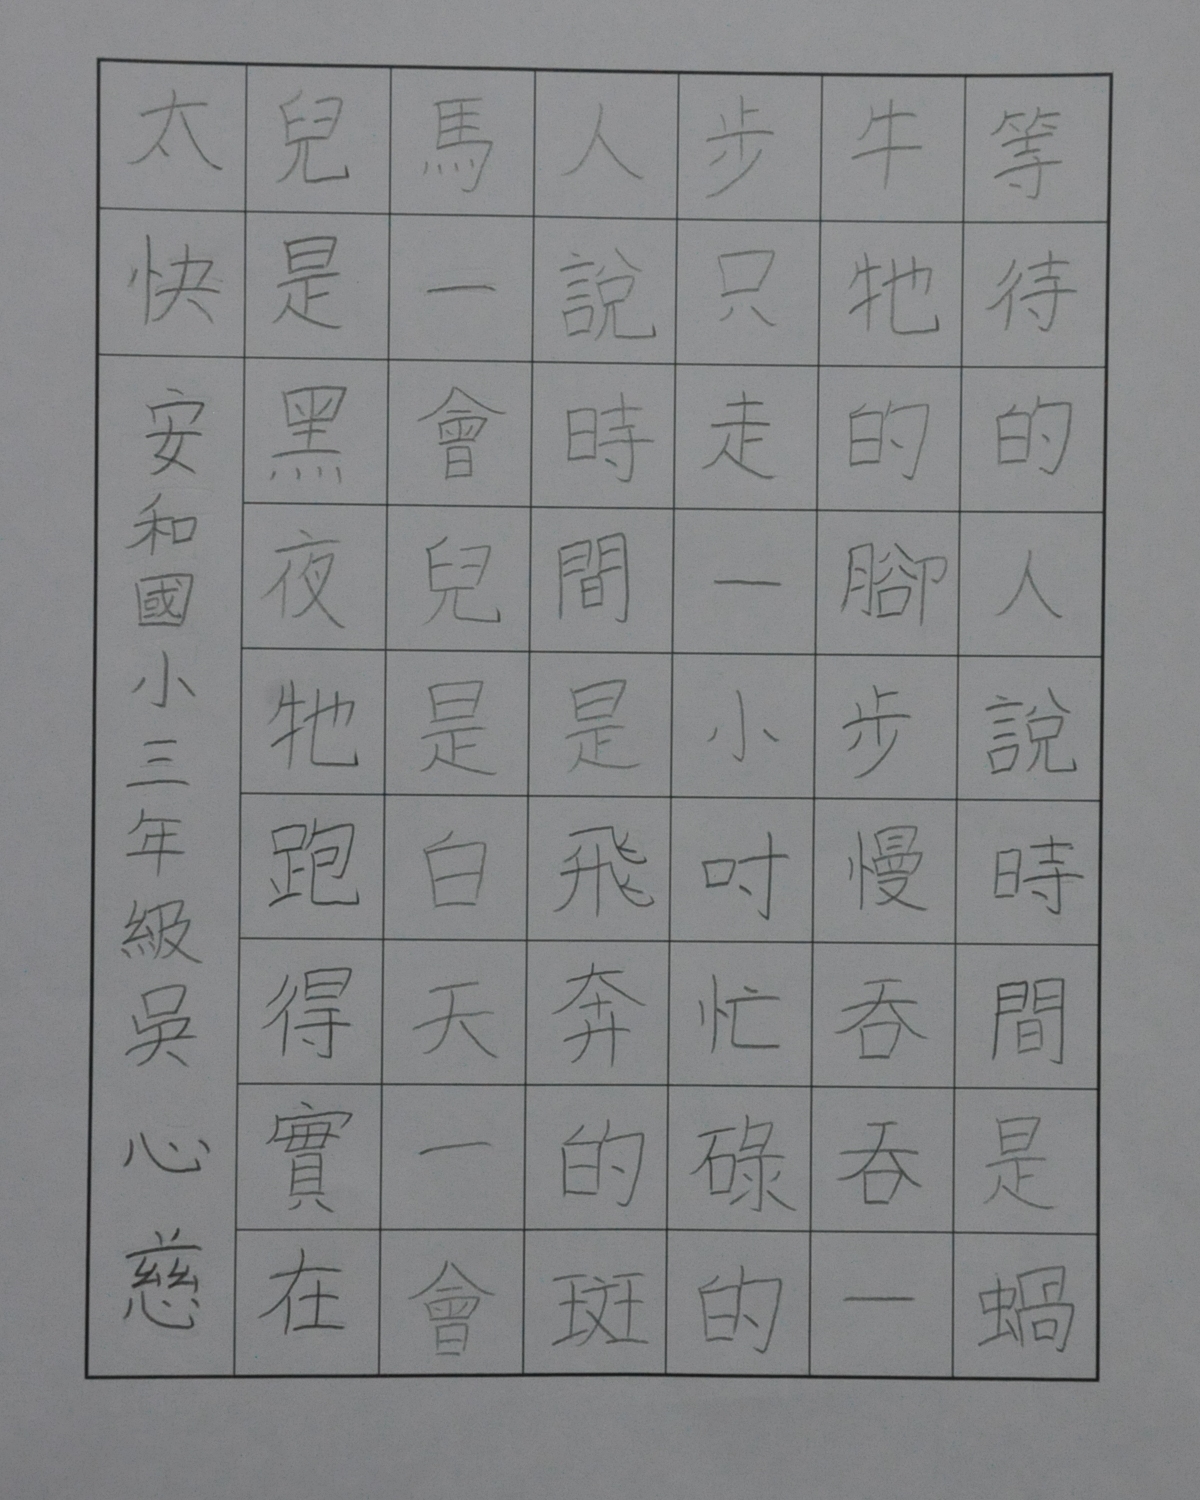 等待的人說時間是蝸
牛牠的腳步慢吞吞一
步只走一小吋忙碌的
人說時間是飛奔的斑
馬一會兒是白天一會
兒是黑夜牠跑得實在
太快
安和國小三年級吳心慈